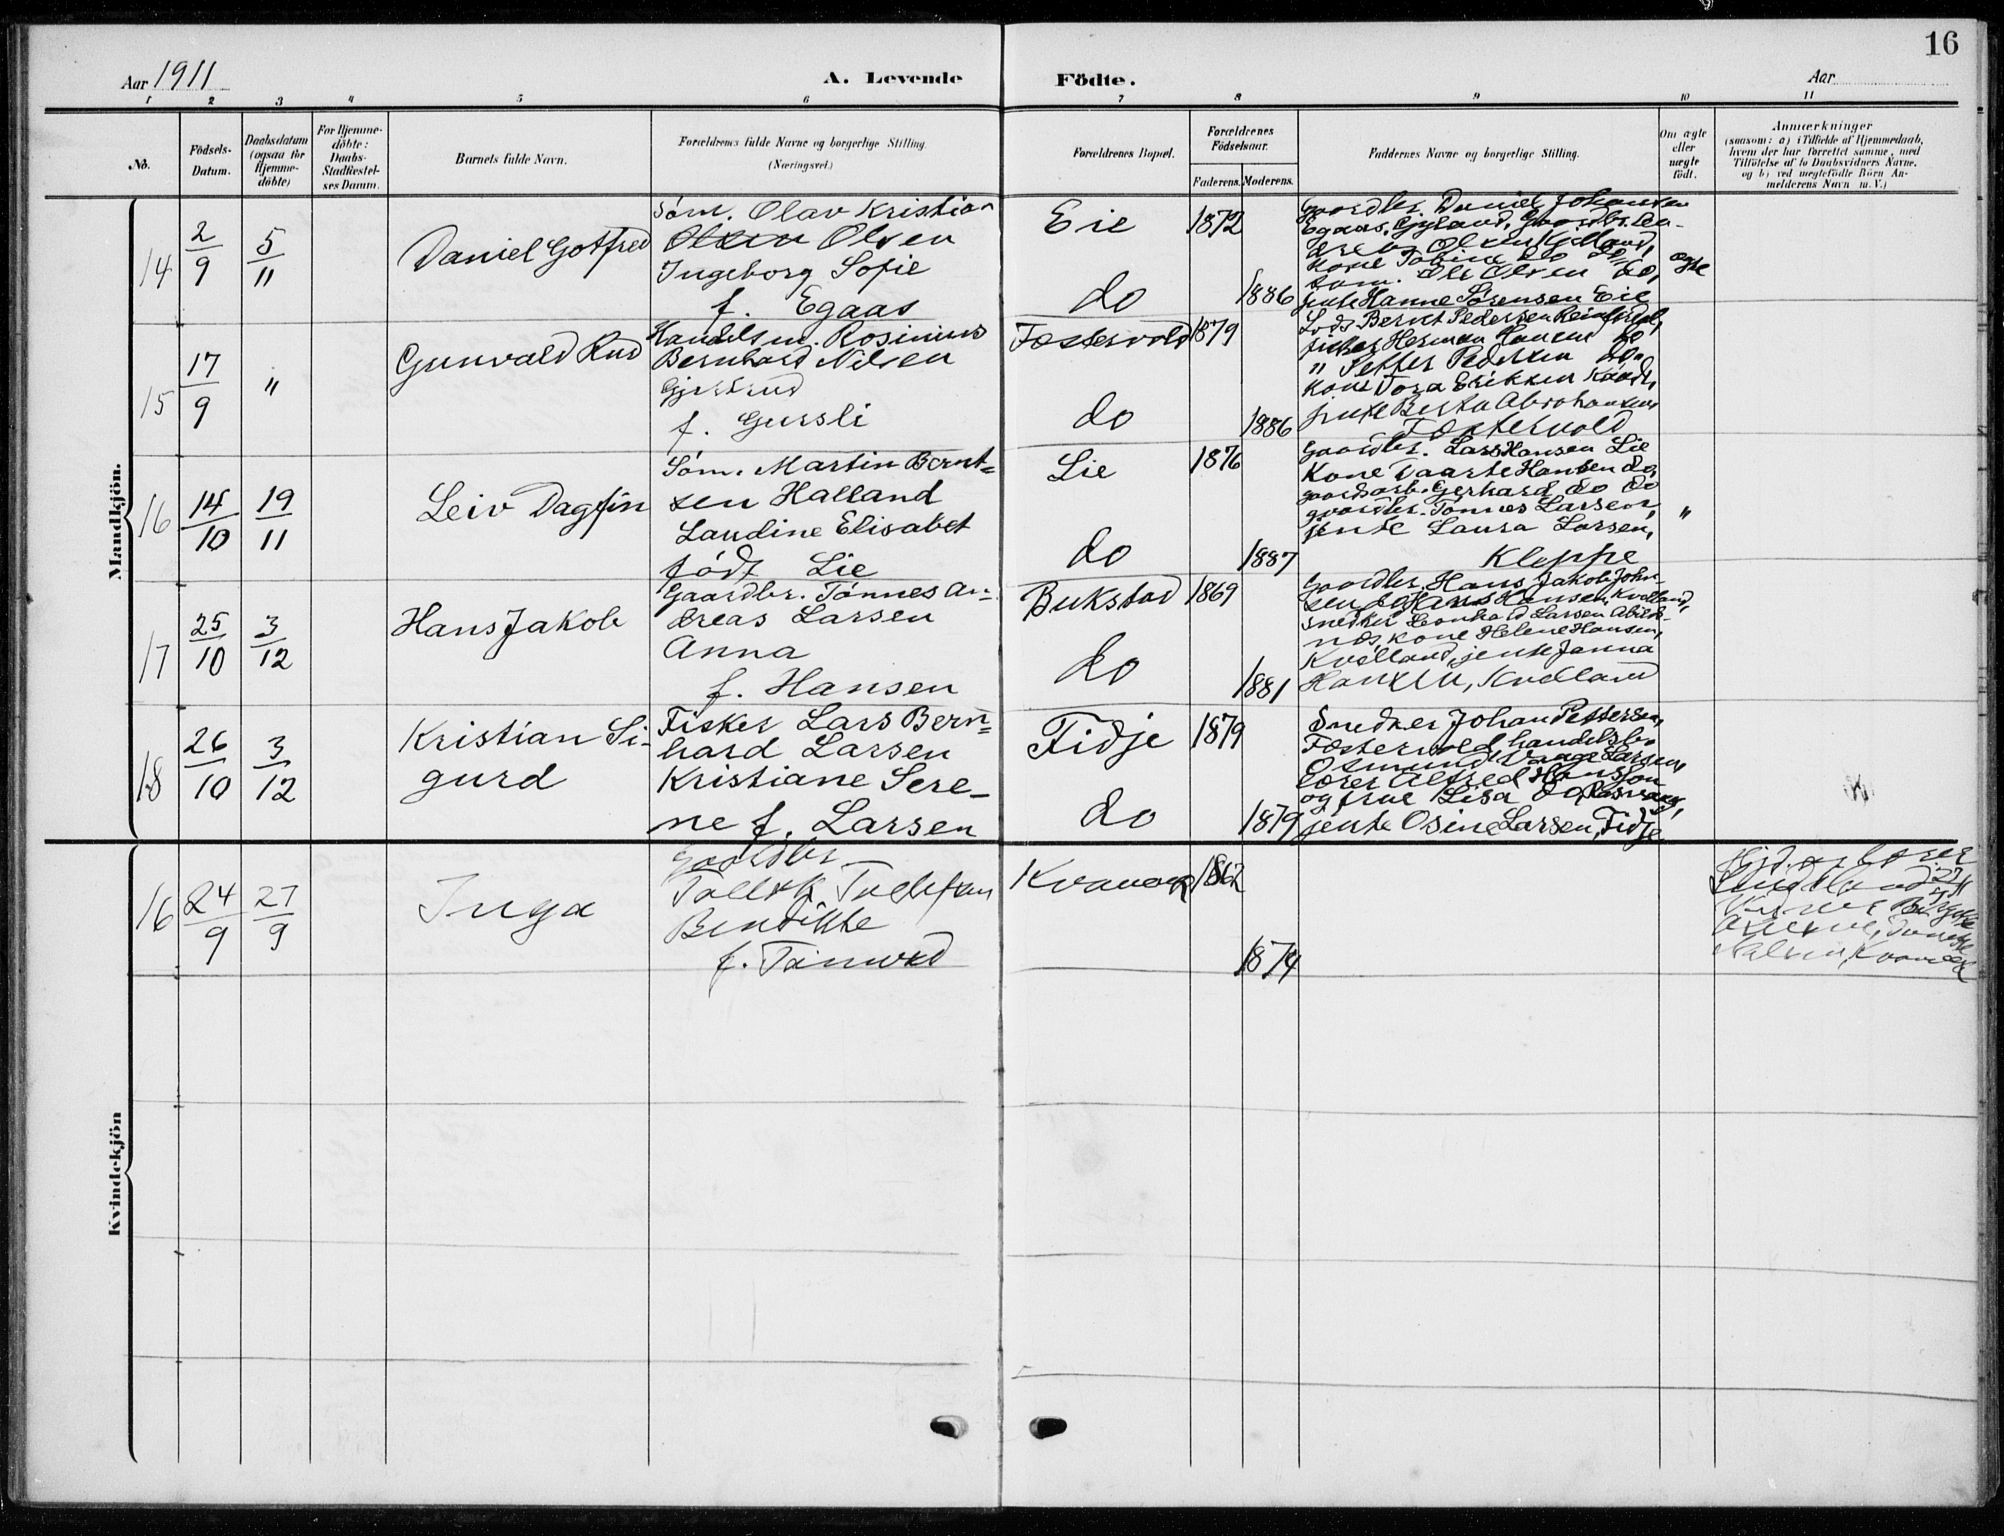 16
Aar 1911
A. Levende
Födte.
Aar
1 2 3 4 5 6 7 8 9 10 11
No.
Födsels-
Datum.
Daabsdatum
(ogsaa for
Hjemme-
döbte)
For Hjemme-
döbte:
Daabs-
Stadfæstel-
ses Datum.
Barnets fulde Navn.
Forældrenes fulde Navne og borgerlige Stilling
(Næringsvei.)
Forældrenes Bopæl.
Forældrenes
Födselsaar.
Faderens. Moderens.
Faddernes Navne og borgerlige Stilling.
Om ægte
eller
uægte
født.
Anmærkninger
(saasom: a) i Tilfælde af Hjemmedaab,
hvem der har forrettet samme, med
Tilföielse af to Daabsvidners Navne,
og b) ved uægtefödte Börn An-
melderens Navn m. V.)
Mandkjön.
14
2/9
5/11
Daniel Gotfred
Söm. Olav Kristian
Olsen
Ingeborg Sofie
f. Egaas
Eie
do
1872
1886
Gaardbr. Daniel Johansen
Egaas, Gyland, Gaardbr. An-
Kone Tobine do do
Söm. Ole Olsen do,
jente Hanne Sørensen Eie
ægte
15
17/9
"
Gunvald Rud
Handelsm. Rosinius
Bernhard Nilsen
Gjertrud
f. Gursli
Fostervold
do
1879
1886
Lods Bernt Pedersen
fisker Herman Hansen do
" Petter Pedersen do.
Kone Tora Eriksen
jente Berta Abrahamsen
Fostervold
16
14/10
19/11
Leiv Dagfin
Söm. Martin Bernt-
sen Halland
Laudine Elisabet
född Lie
Lie
do
1876
1887
Gaardbr. Lars Hansen Lie
Kone Vaarte Hansen do,
gaardsarb. Gerhard do do
gaardbr. Tønnes Larsen,
jente Laura Larsen,
Kleppe
"
17
25/10
3/12
Hans Jakob
Gaardbr. Tönnes An-
dreas Larsen
Anna
f. Hansen
Bukstad
do
1869
1881
Gaardbr. Hans Jakob John-
sen, Hans Hansen, Kvolland,
snedker Leonhard Larsen Abild-
nes, kone Helene Hansen,
Kvolland, jente Janna
Hansen, Kvolland
18
26/10
3/12
Kristian Si-
gurd
Fisker Lars Bern-
hard Larsen
Kristiane Sere-
ne f. Larsen
Fidje
do
1879
1879
Snedker Johan Pettersen,
Fostervold, handelsbr.
Osmund Vaage Larsen,
lærer Alfred Hansson
og frue Lisa do,
jente Osine Larsen, Fidje
Kvindekjön
16
24/9
27/9
Inga
Gaardbr
Tallak Tallefsen
Bendikte
f. Tönnesd
Kvavik
1862
1874